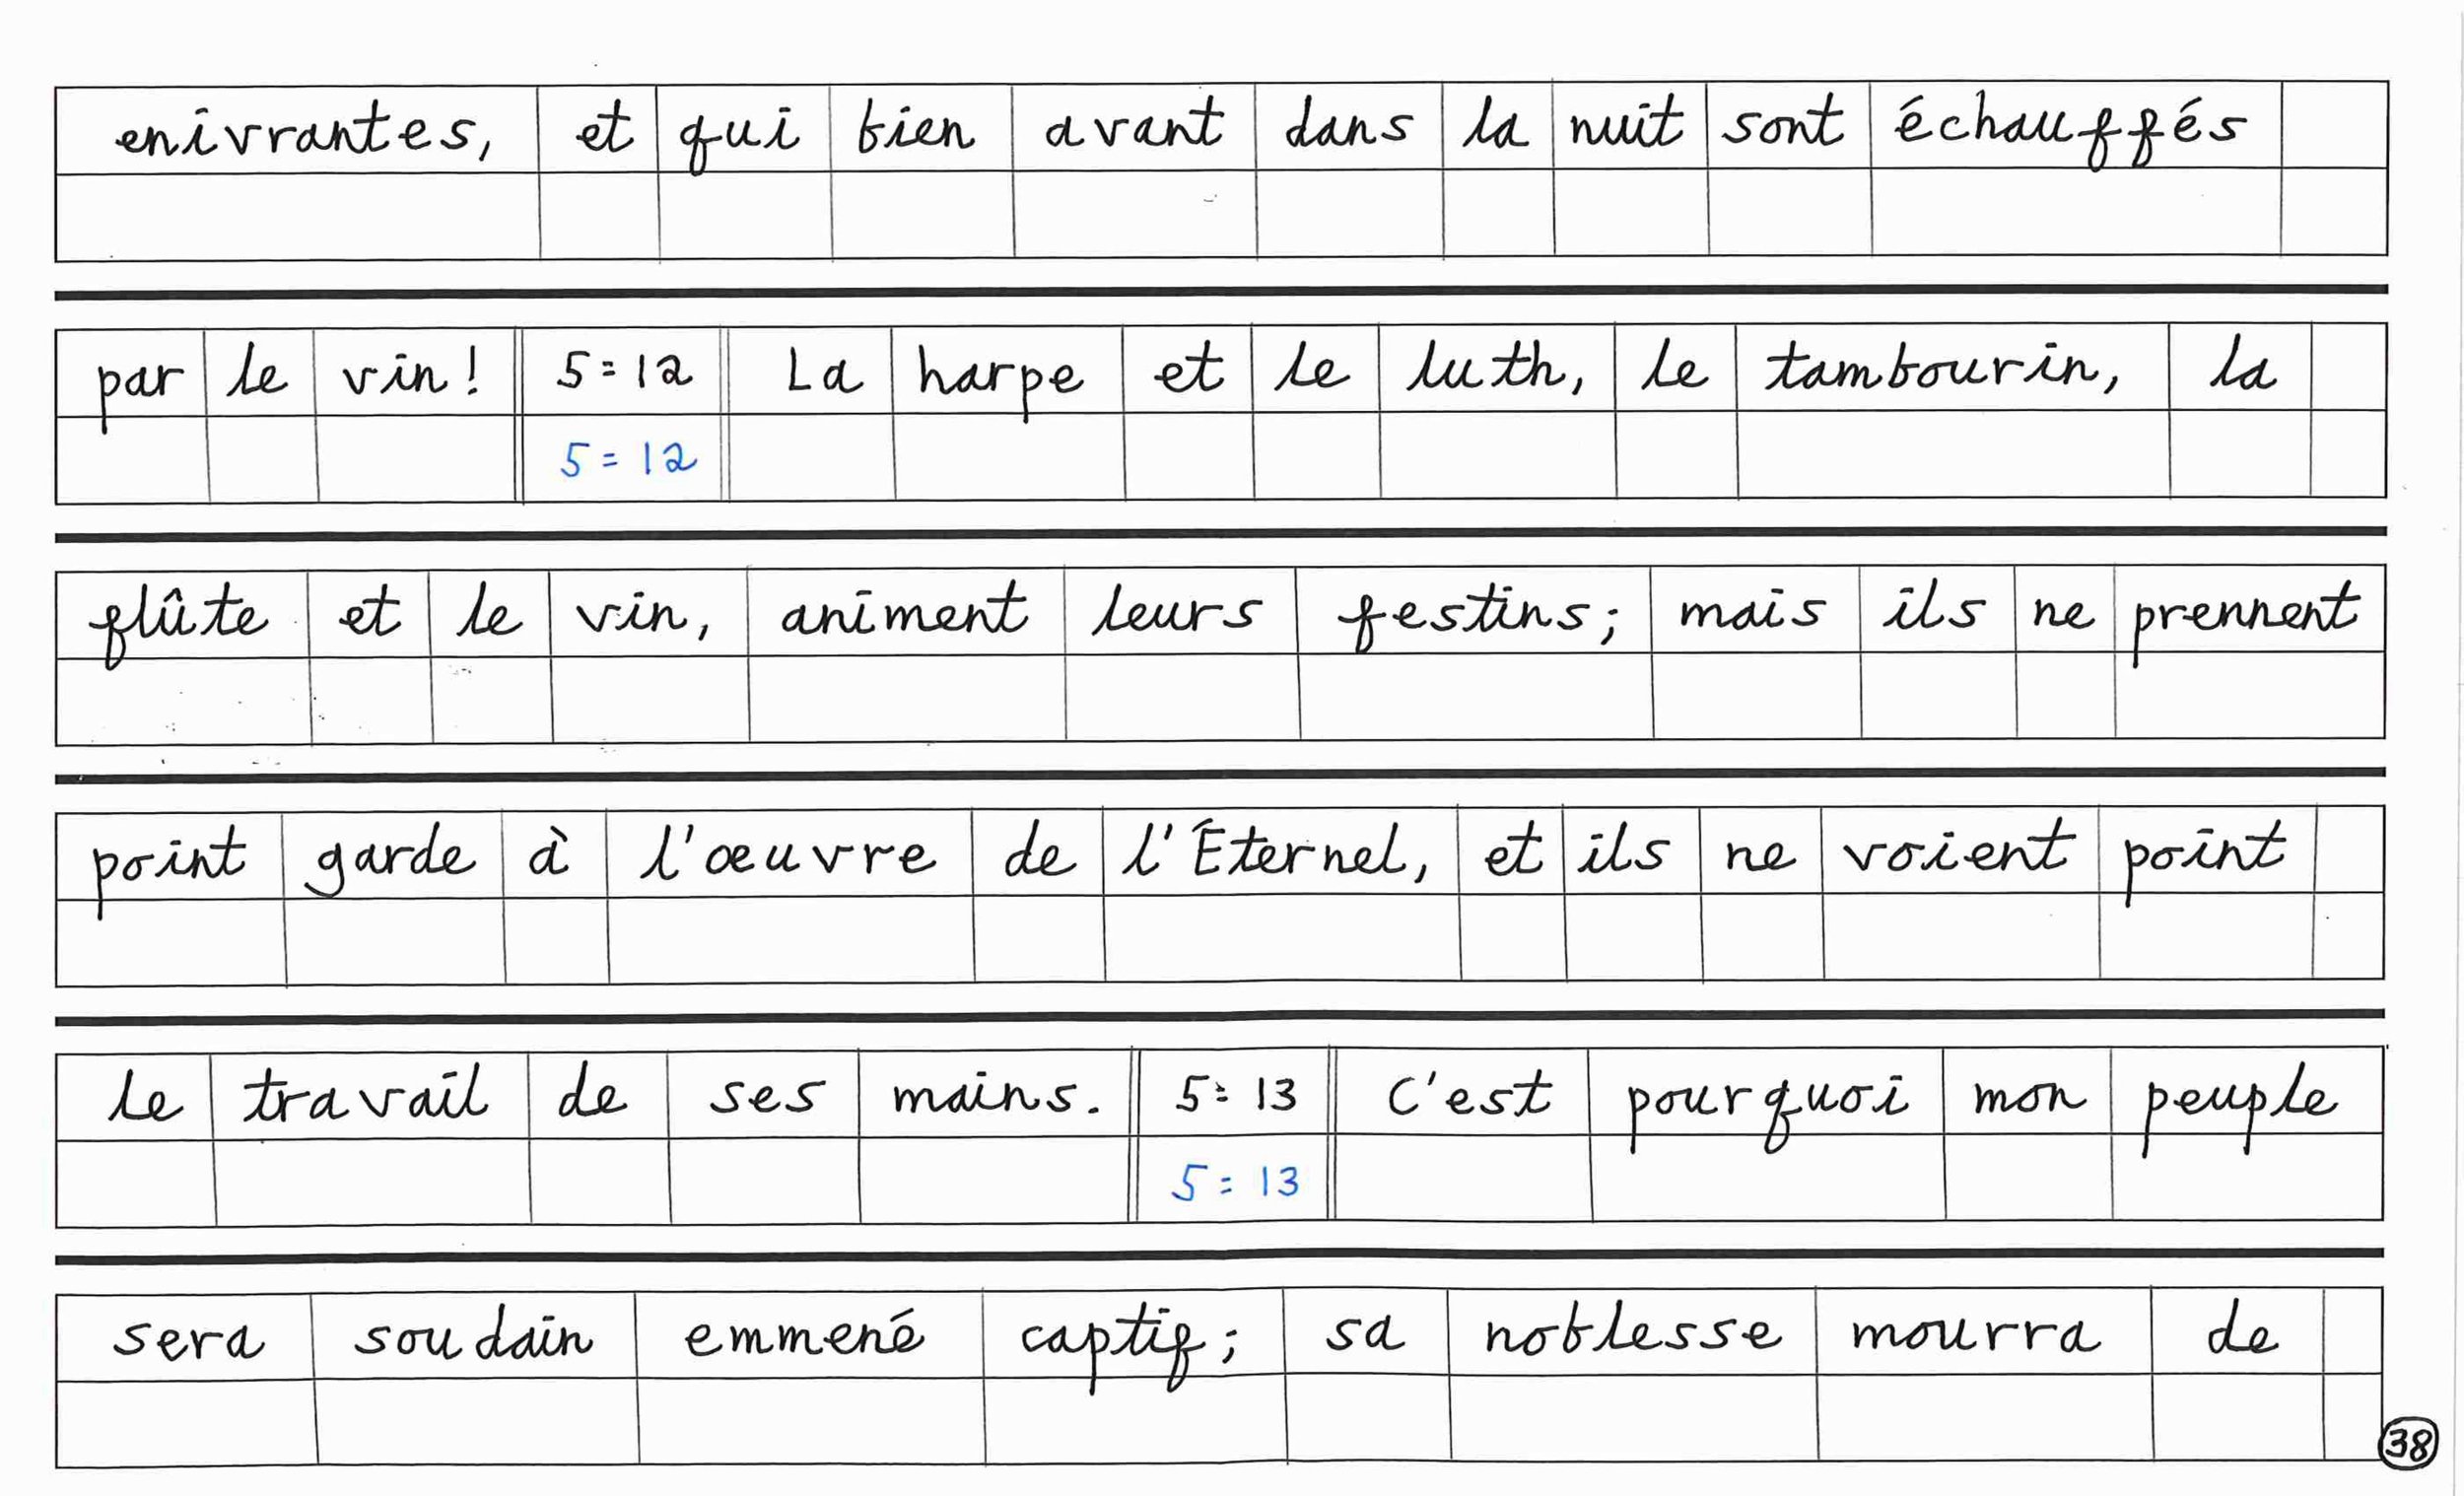 enivrantes, et qui bien avant dans la nuit sont échauffés
par le vin! 5=12 La harpe et le luth, le tambourin, la
5=12
flûte et le vin, animent leurs festins; mais ils ne prennent
point garde à l'œuvre de l'Éternel, et ils ne voient point
le travail de ses mains. 5=13 C'est pourquoi mon peuple
5=13
sera soudain emmené captif; sa noblesse mourra de
38